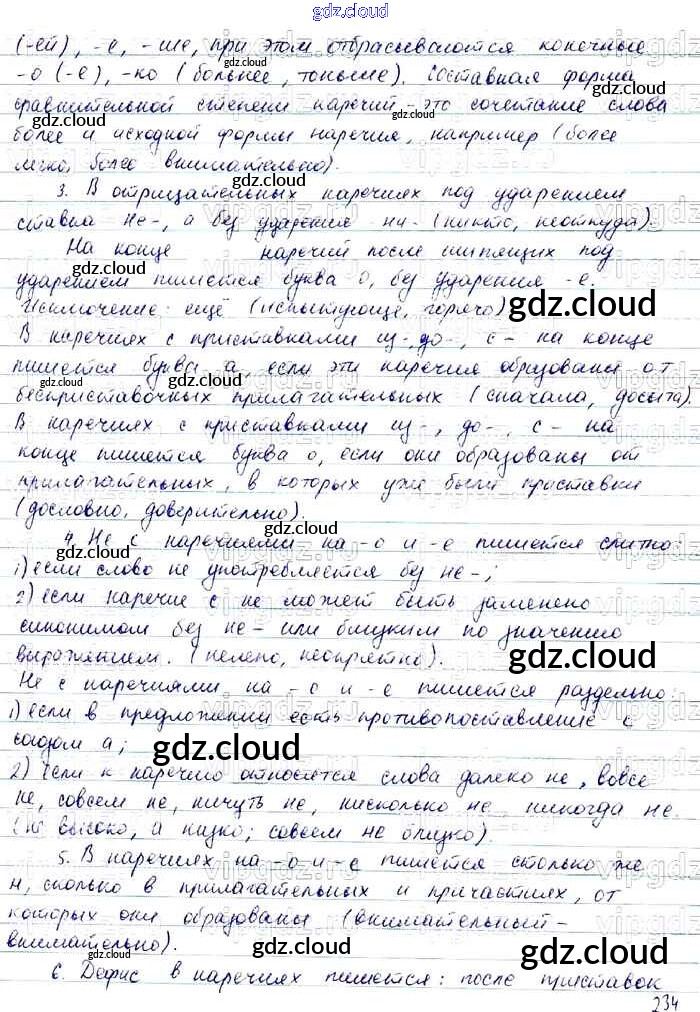 gdz.cloud
(-ей), -е, -ше, при этом отбрасываются конечные
-о (-е), -ко (больнее, тоньше). Составная форма
сравнительной степени наречий - это сочетание слова
более и исходной формы наречия, например (более
легко, более внимательно).
3. В отрицательных наречиях под ударением
ставка не-, а без ударения -ни- (никто, неоткуда).
На конце наречий после шипящих под
ударением пишется буква о, без ударения -е.
Исключение ещё (испытующе, горячо)
В наречиях с приставками из-, до-, с- на конце
пишется буква а, если эти наречия образованы от
бесприставочных прилагательных (сначала, досыта).
В наречиях с приставками из-, до-, с- на
конце пишется буква о, если они образованы от
прилагательных, в которых уже были приставки
(дословно, доверительно).
4. Не с наречиями на -о и -е пишется слитно:
1) если слово не употребляется без не-;
2) если наречие с не может быть заменено
синонимом без не- или близким по значению
выражением. (нелепо, неопрятно).
Не с наречиями на -о и -е пишется раздельно:
1) если в предложении есть противопоставление с
союзом а;
2) Если к наречию относятся слова далеко не, вовсе
не, совсем не, ничуть не, нисколько не, никогда не.
(не высоко, а низко; совсем не близко).
5. В наречиях на -о и -е пишется столько же
н, сколько в прилагательных и причастиях, от
которых они образованы (внимательный-
внимательно).
6. Дефис в наречиях пишется: после приставок
234